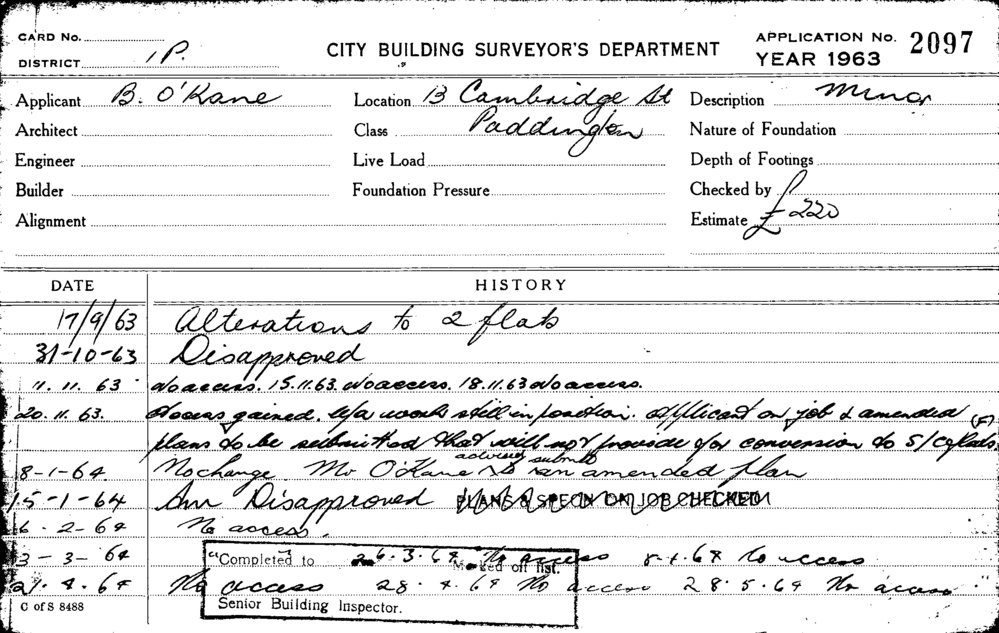 CARD No. APPLICATION No. 2097
DISTRICT 1P. CITY BUILDING SURVEYOR'S DEPARTMENT YEAR 1963
Applicant B. O'Kane Location 13 Cambridge St Description Minor
Architect Class Paddington Nature of Foundation
Engineer Live Load Depth of Footings
Builder Foundation Pressure Checked by
Alignment Estimate £220
DATE HISTORY
17/9/63 Alterations to 2 flats
31-10-63 Disapproved
11. 11. 63 No access. 15.11.63 No access. 18.11.63 No access.
20. 11. 63. Access gained. work still in position. Applicant on job & amended
plans to be submitted that will not provide for conversion to S/C flats.
8-1-64 No change Mr O'Kane to submit an amended plan
15-1-64 Am Disapproved PLANS & SPECN ON JOB CHECKED
6-2-64 No access.
3-3-64 "Completed to 26.3.64 No access Marked off list. 8.4.64 No access
4.64 No access 28.4.64 No access 28.5.64 No access
C of S 8488 Senior Building Inspector.